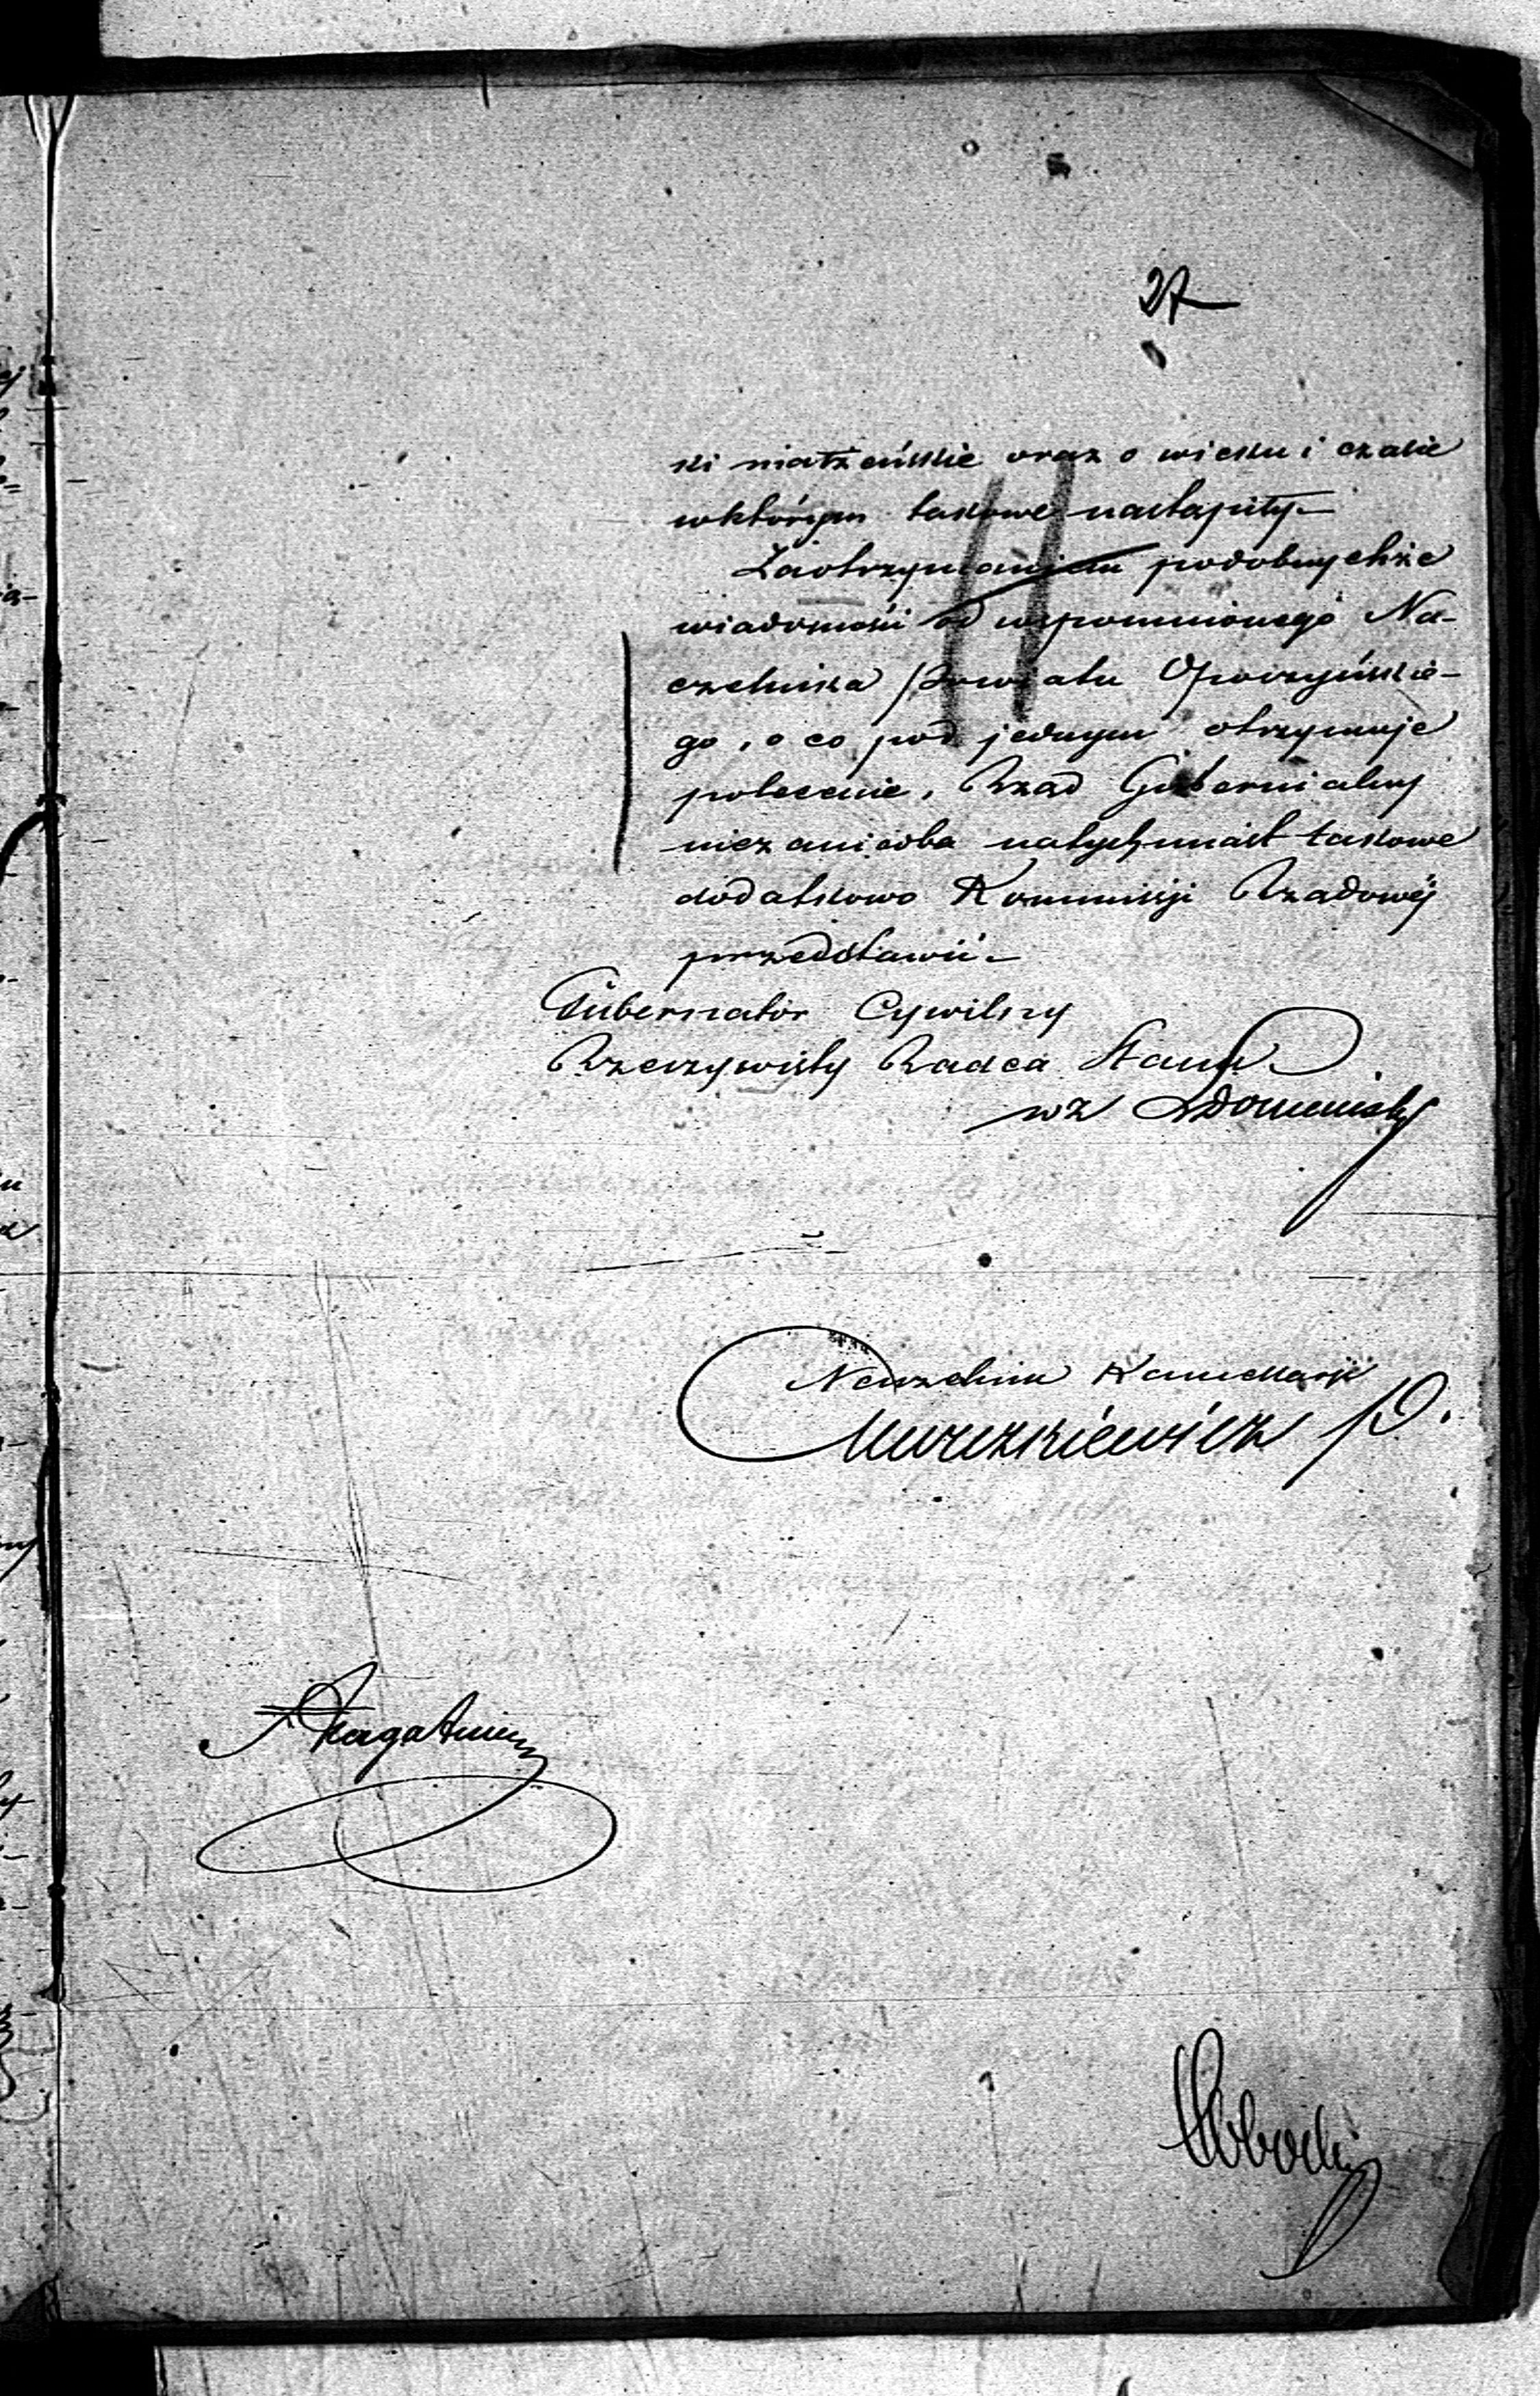 27
ki małżeńskie oraz o wieku i czasie
wktórym takowe nastąpiły
Zaotrzymaniem podobnychże
wiadomości od wspomnionego Na-
czelnika Powiatu Opoczyńskie-
go, o co pod jednym otrzymuje
polecenie, Rząd Gubernialny
niezaniedba natychmiast takowe
dodatkowo Kommissyi Rządowéj
przedstawić
Gubernator Cywilny
Rzeczywisty Radca Stanu
wz
Naczelnik Kancellaryi